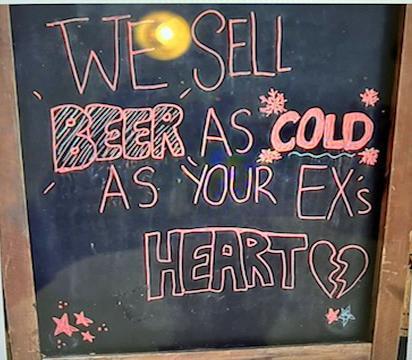 WE SELL
BEER AS COLD
AS YOUR EX's
HEART